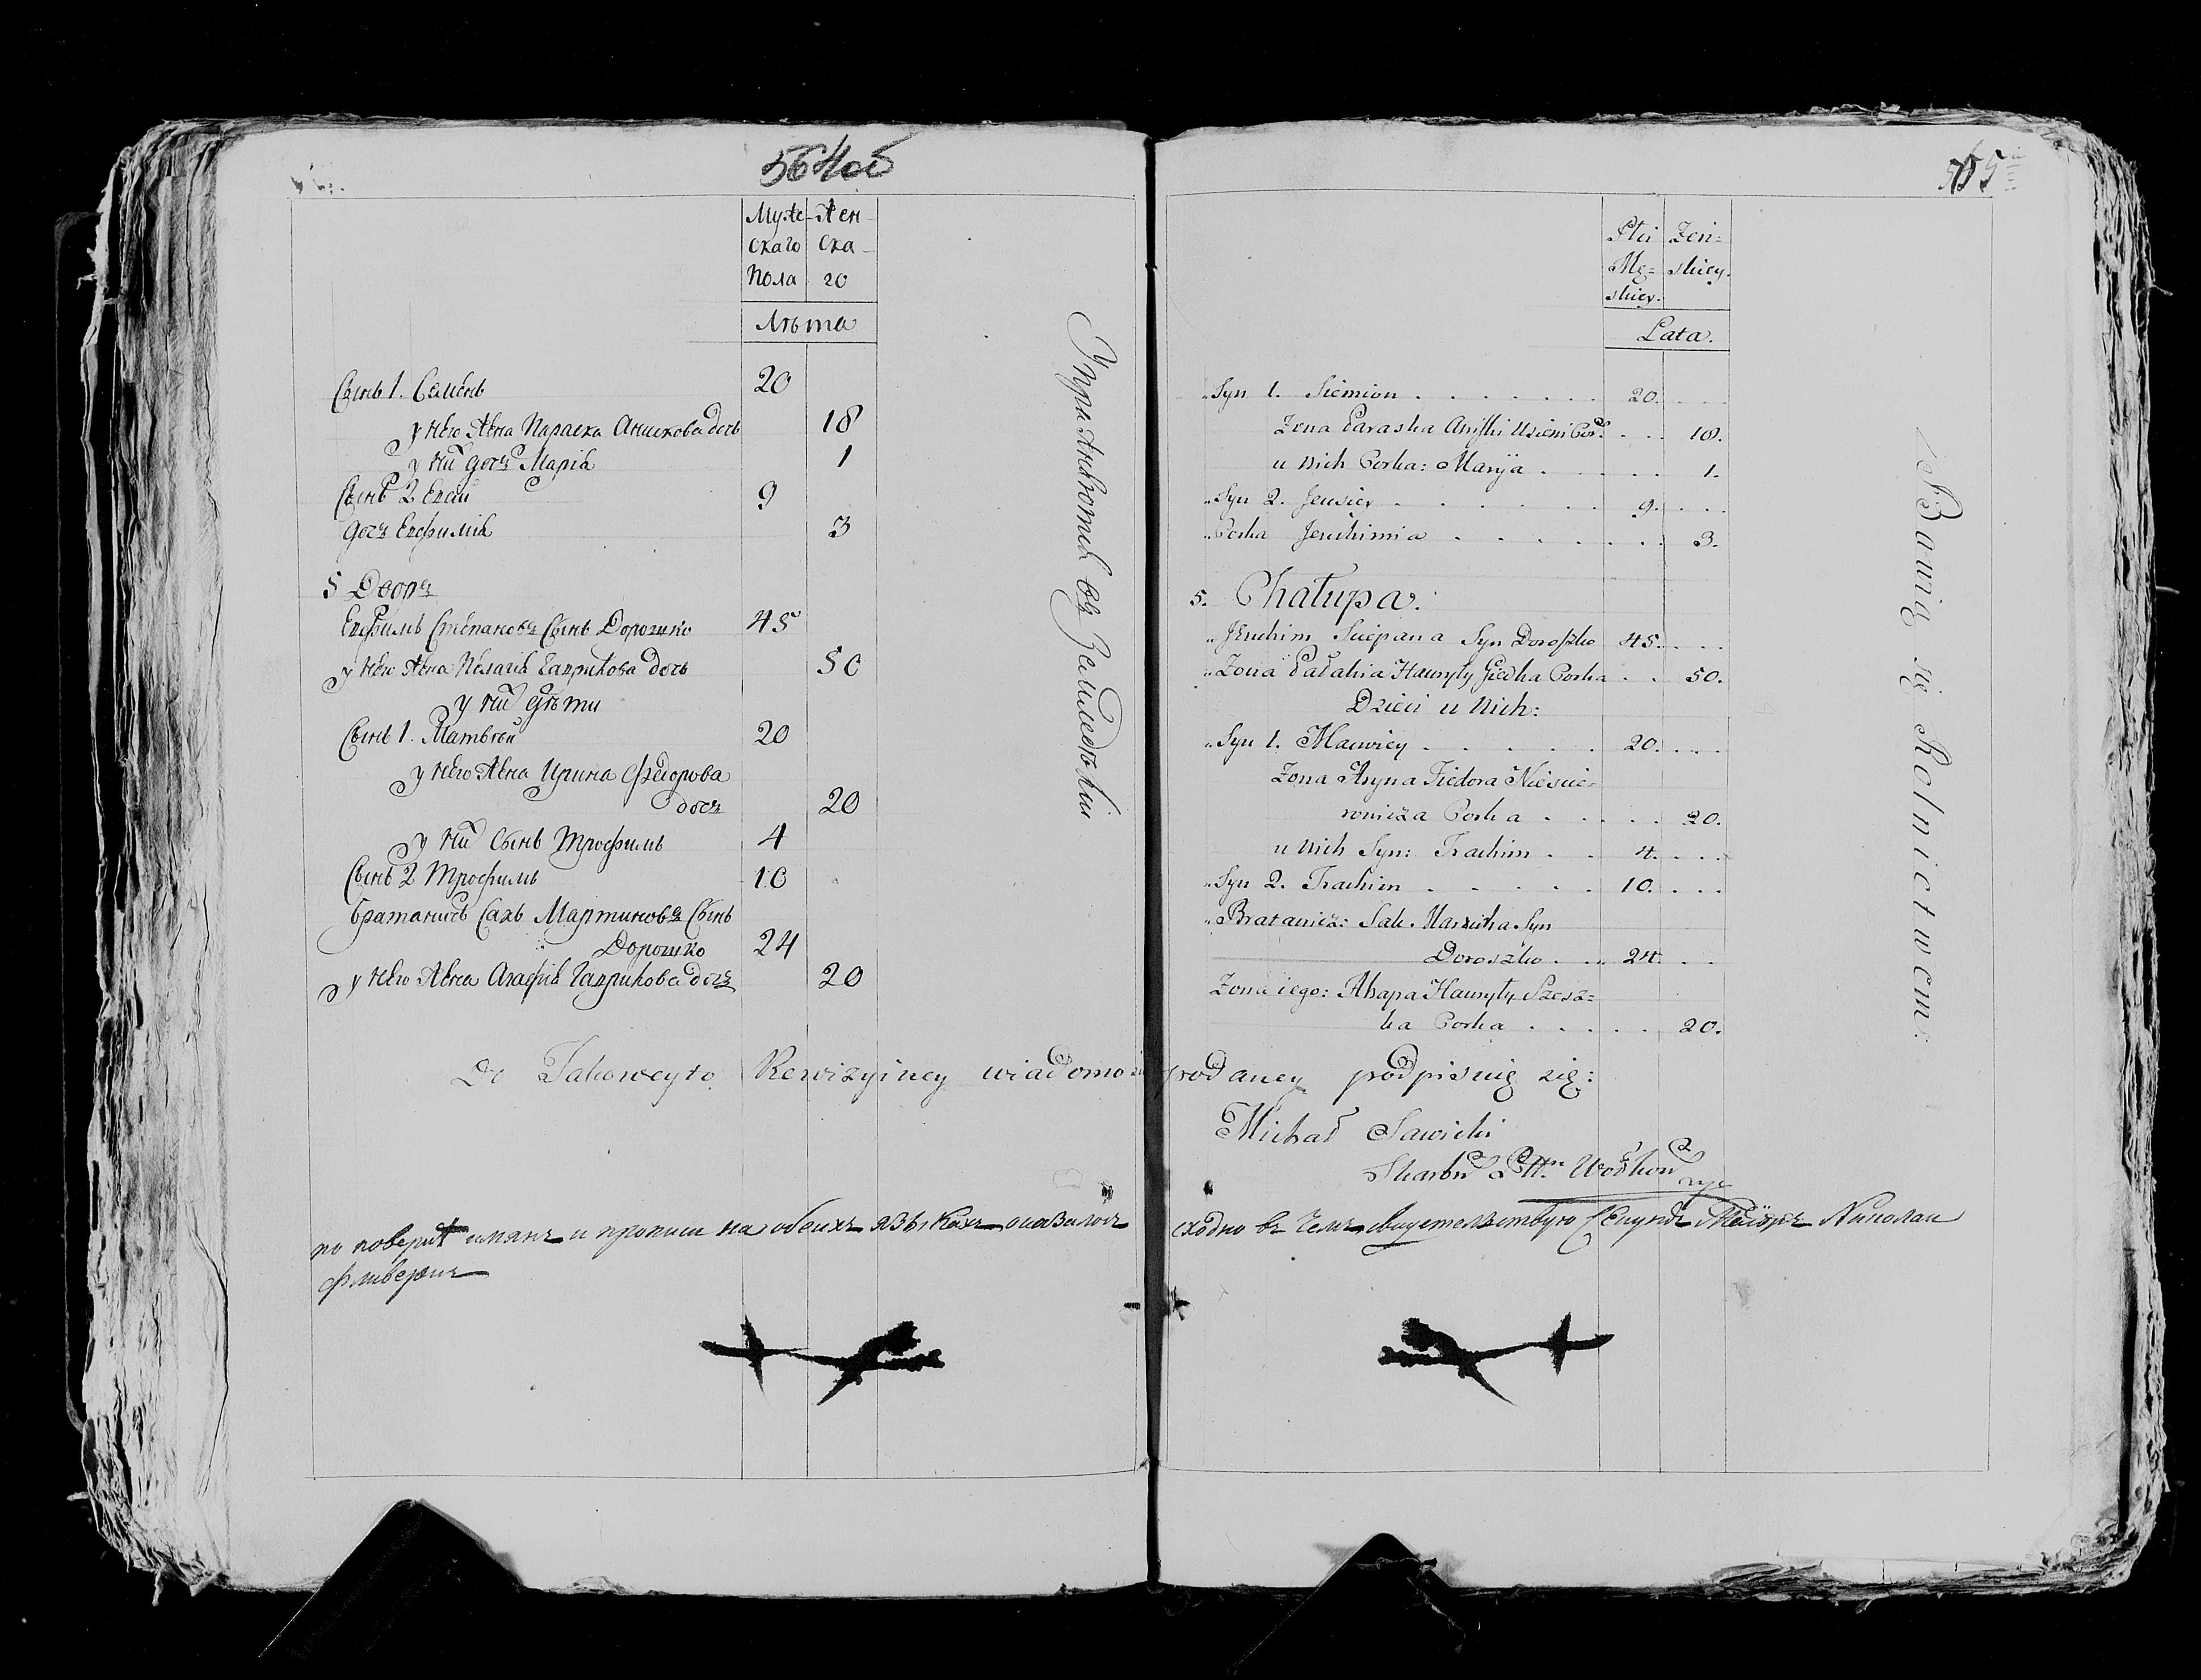 564об
Муже-
скаго
Пола
Жен-
ска-
го
Лѣта
Сынъ 1. Семенъ 20
у него Жена Параска Анискова дочь 18
у ни дочъ Марія 1
Сынъ 2 Евсей 9
дочъ Евфимія 3
5 Дворъ
Евфимъ Степановъ Сынъ Дорошко 45
у него Жена Пелагія Гаврилова дочь 50
у ни дѣти
Сынъ 1. Матвѣй 20
у него Жена Ирина Федорова
дочъ 20
у ни Сынъ Трофимъ 4
Сынъ 2 Трофимъ 10
братаничъ Сахъ Мартиновъ Сынъ
Дорошко 24
у него Жена Агафія Гаврилова дочъ 20
Упражняются въ Земледѣліи
565
Płci
Mę=
skiey.
Żeń=
skiey.
Lata.
Syn 1. Siemion 20.
Żona Paraska 18.
u nich Corka: Maryia 1.
Syn 2. Jeusiey 9.
Corka Jeuchimia 3.
5. Chałupa.
Jeuchim Sciepana Syn Doroszko 45.
Żona Pałahia Hauryły Corka 50.
Dzieci u Nich:
Syn 1. Mацwiey 20.
Żona Aryna Fiedora Niesцie=
rowicza Corka 20.
u nich Syn: Trachim 4.
Syn 2. Trachim 10.
Bratanicz: Sak. Marcina Syn
Doroszko 24.
Żona iego: Ahapa Hauryły Szesz=
ka Corka 20.
Bawią się Rolnictwem:
Do Takoweyto Rewizyiney wiadomości podaney podpisuię się:
Michał Sawicki
по поверке имянъ и прописи на обеихъ языкахъ оказалось сходно въ чемъ свидетельствую Секундъ Маіоръ Николаи